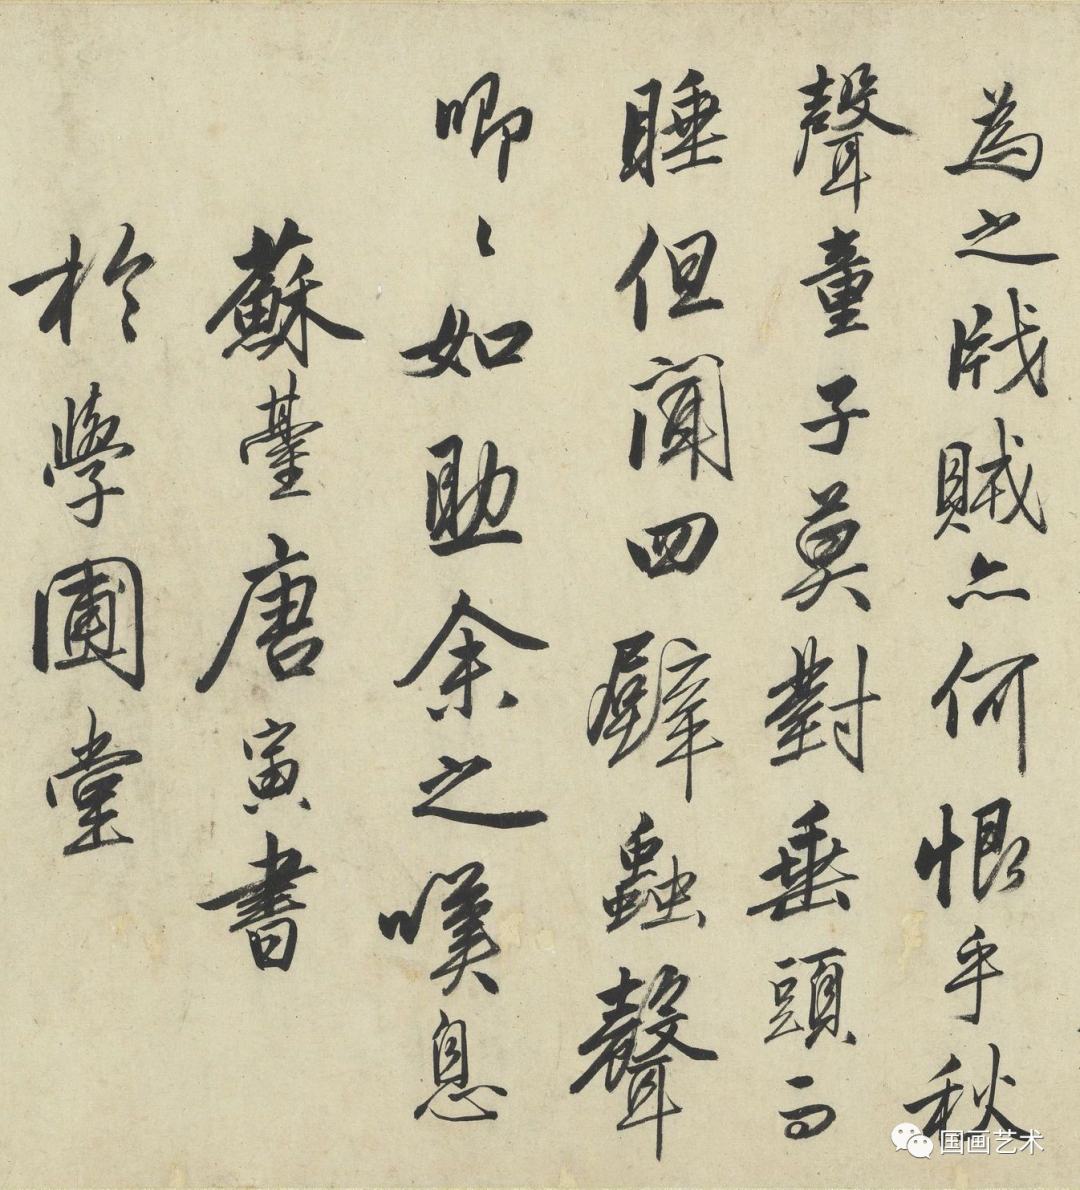 為之戕賊亦何恨乎秋
聲童子莫對垂頭而
睡但聞四壁蟲聲
唧〻如助余之嘆息
蘇臺唐寅書
於學圃堂
国画艺术